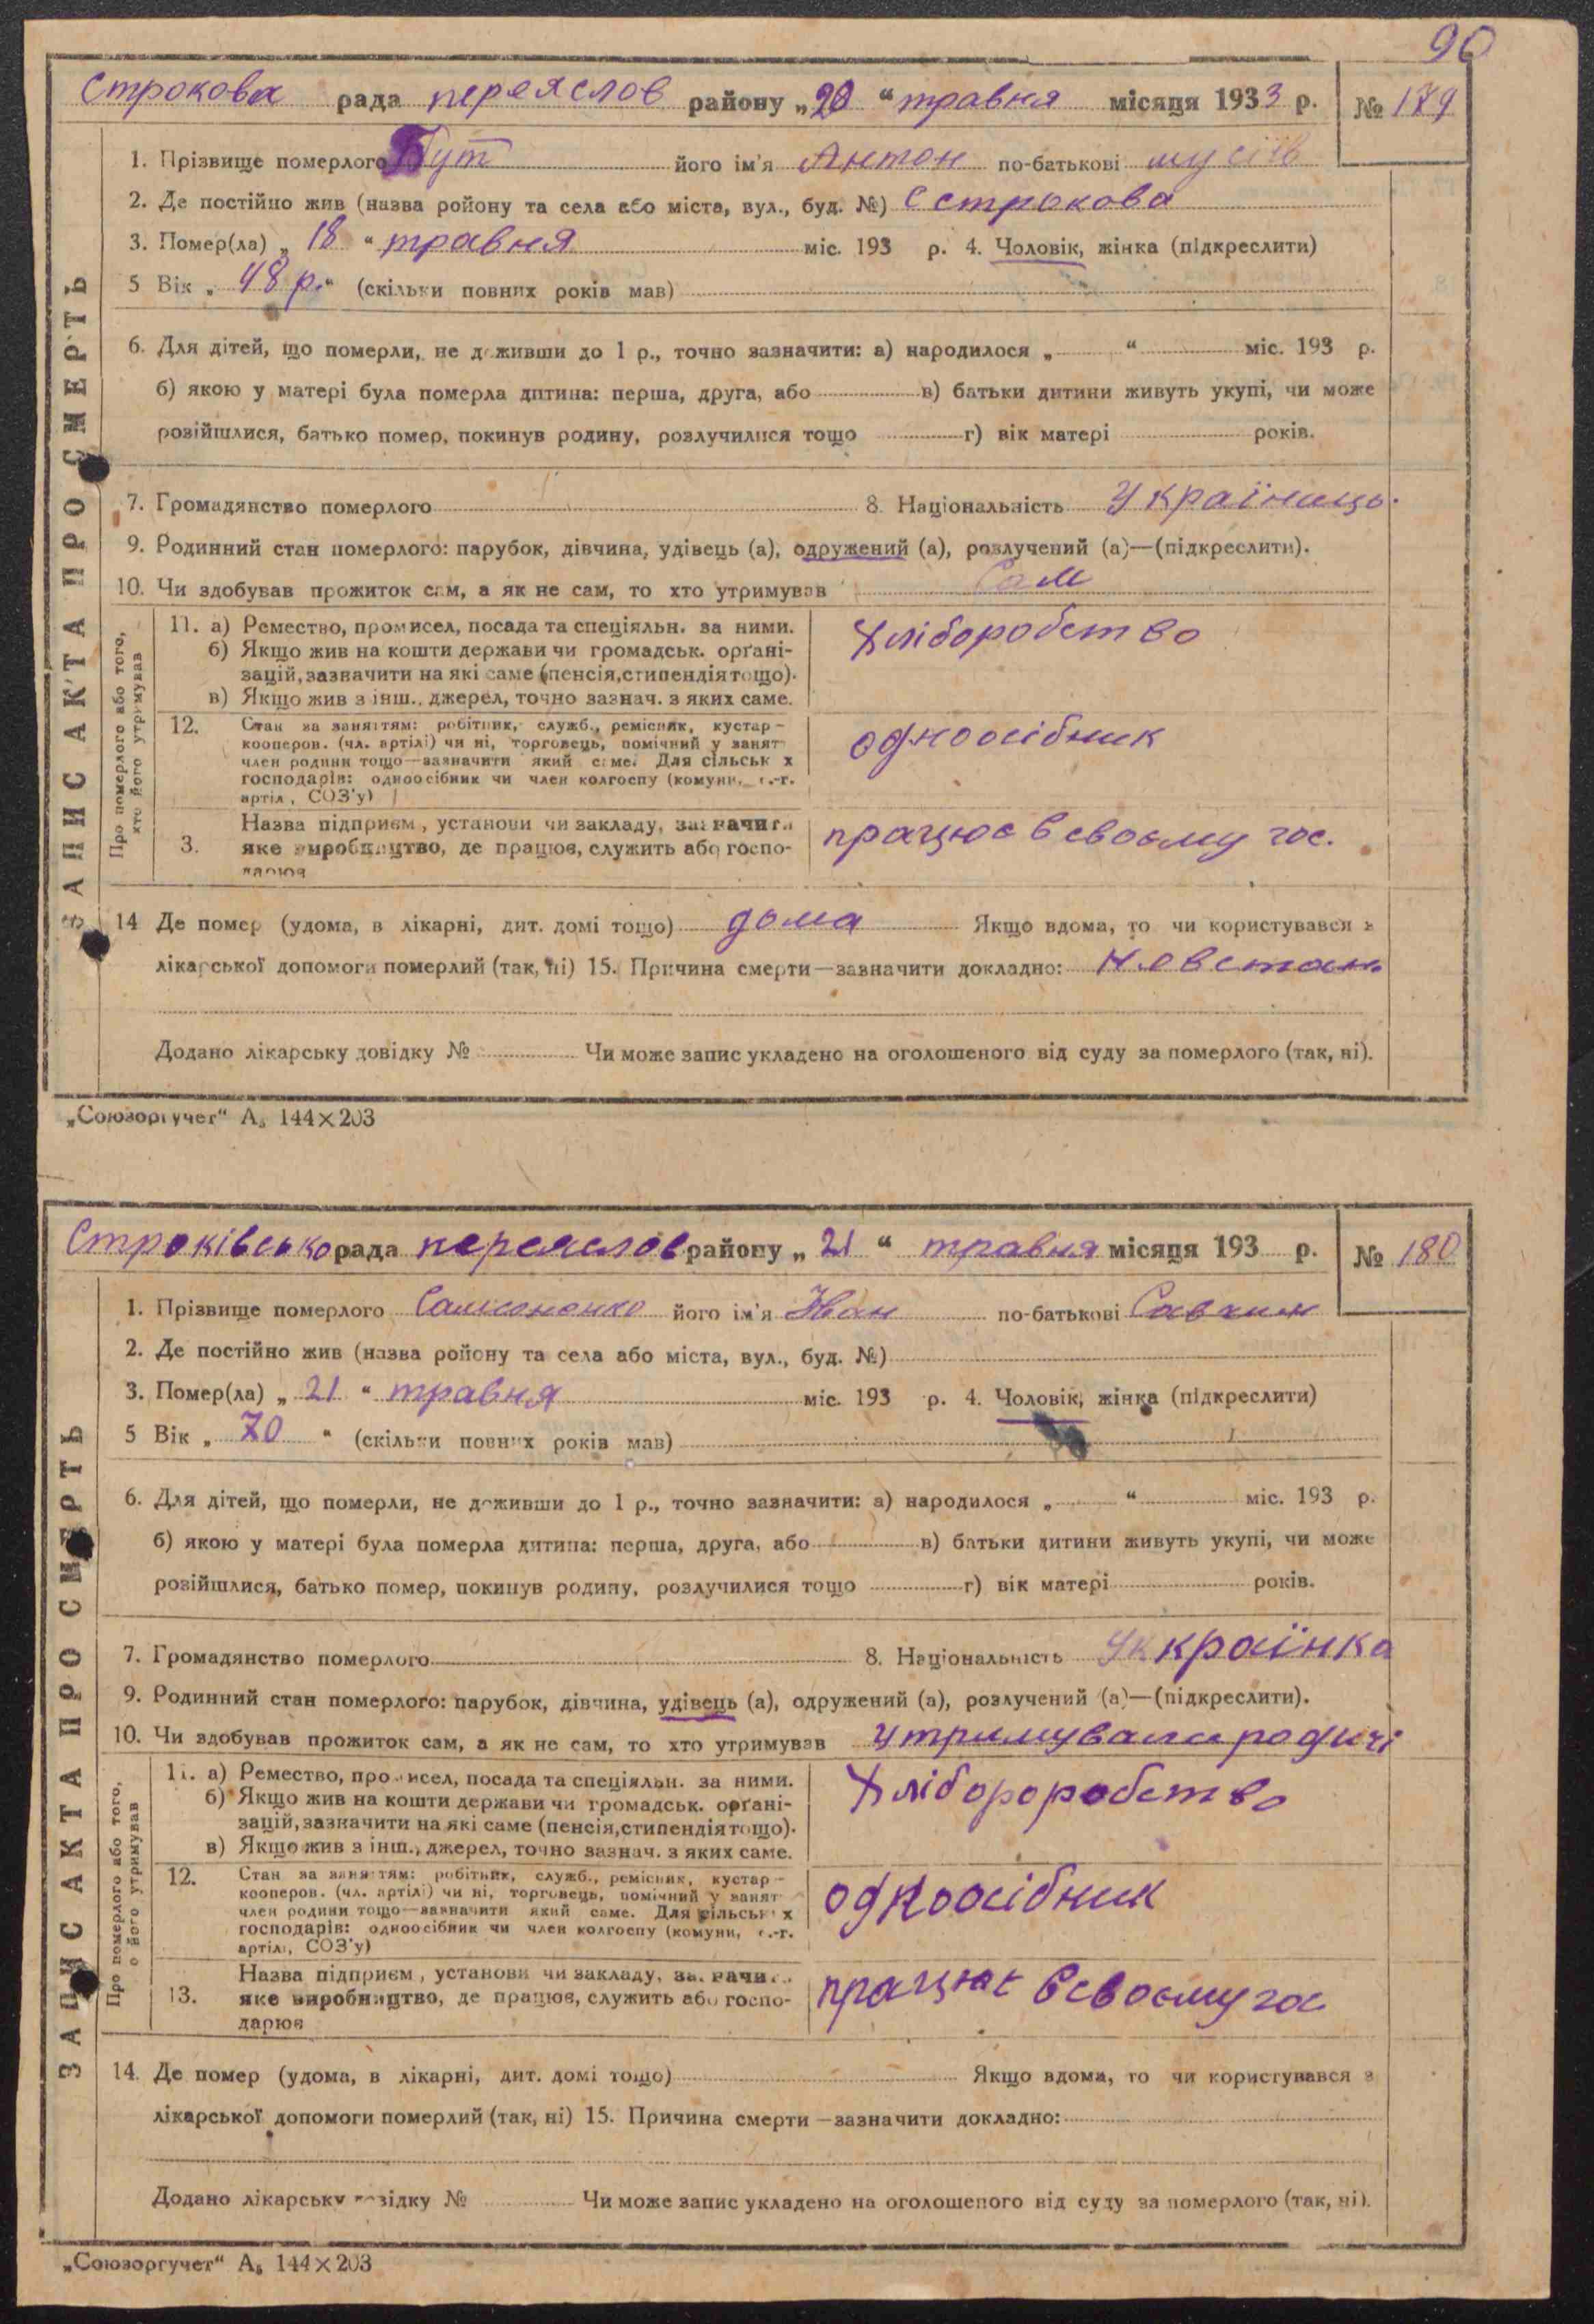 90
Строкова рада переяслов району „20“ травня місяця 1933 р. № 179
1. Прізвище померлого Бут його ім'я Антон по-батькові мусіїв
2. Де постійно жив (назва ройону та села або міста, вул., буд. №) С строкова
3. Помер(ла) „18“ травня міс. 193 р. 4. Чоловік, жінка (підкреслити)
5 Вік „48 р.“ (скільки повних років мав)
6. Для дітей, що померли, не доживши до 1 р., точно зазначити: а) народилося „ “ міс. 193 р.
б) якою у матері була померла дитина: перша, друга, або в) батьки дитини живуть укупі, чи може
розійшлися, батько помер, покинув родину, розлучилися тощо г) вік матері років.
7. Громадянство померлого 8. Національність Українць.
9. Родинний стан померлого: парубок, дівчина, удівець (а), одружений (а), розлучений (а)—(підкреслити).
10. Чи здобував прожиток сам, а як не сам, то хто утримував Сам
ЗАПИС АКТА ПРО СМЕРТЬ
Про померлого або того, хто його утримував
11. а) Ремество, промисел, посада та спеціяльн. за ними.
б) Якщо жив на кошти держави чи громадськ. орґані-
зацій, зазначити на які саме (пенсія, стипендія тощо).
в) Якщо жив з інш., джерел, точно зазнач. з яких саме.
Хліборобство
12. Стан за заняттям: робітник, служб., ремісник, кустар-
кооперов. (чл. артілі) чи ні, торговець, помічний у занят
член родини тощо—зазначити який саме. Для сільськ х
господарів: одноосібник чи член колгоспу (комуни, с.-г.
артіл , СОЗ'у)
одноосібник
3. Назва підприєм , установи чи закладу, зазначити
яке виробництво, де працює, служить або госпо-
дарює
працює в своєму гос.
14 Де помер (удома, в лікарні, дит. домі тощо) дома Якщо вдома, то чи користувався з
лікарської допомоги померлий (так, ні) 15. Причина смерти—зазначити докладно:
Додано лікарську довідку № Чи може запис укладено на оголошеного від суду за померлого (так, ні).
„Союзоргучет“ А₅ 144×203
Строківсько рада переяслов району „21“ травня місяця 193 р. № 180
1. Прізвище померлого Самсоненко його ім'я Іван по-батькові
2. Де постійно жив (назва ройону та села або міста, вул., буд. №)
3. Помер(ла) „21“ травня міс. 193 р. 4. Чоловік, жінка (підкреслити)
5 Вік „70“ (скільки повних років мав)
6. Для дітей, що померли, не доживши до 1 р., точно зазначити: а) народилося „ “ міс. 193 р.
б) якою у матері була померла дитина: перша, друга, або в) батьки дитини живуть укупі, чи може
розійшлися, батько помер, покинув родину, розлучилися тощо г) вік матері років.
7. Громадянство померлого 8. Національність Уккраїнка
9. Родинний стан померлого: парубок, дівчина, удівець (а), одружений (а), розлучений (а)—(підкреслити).
10. Чи здобував прожиток сам, а як не сам, то хто утримував утримували родичі
ЗАПИС АКТА ПРО СМЕРТЬ
Про померлого або того, о його утримував
11. а) Ремество, промисел, посада та спеціяльн. за ними.
б) Якщо жив на кошти держави чи громадськ. орґані-
зацій, зазначити на які саме (пенсія, стипендія тощо).
в) Якщо жив з інш., джерел, точно зазнач. з яких саме.
Хлібороробство
12. Стан за заняттям: робітник, служб., ремісник, кустар-
кооперов. (чл. артілі) чи ні, торговець, помічний у занят
член родини тощо—зазначити який саме. Для сільськ х
господарів: одноосібник чи член колгоспу (комуни, с.-г.
артілі, СОЗ'у)
одноосібник
13. Назва підприєм , установи чи закладу, зазначити
яке виробництво, де працює, служить або госпо-
дарює
працює в своєму гос
14. Де помер (удома, в лікарні, дит. домі тощо) Якщо вдома, то чи користувався з
лікарської допомоги померлий (так, ні) 15. Причина смерти—зазначити докладно:
Додано лікарську довідку № Чи може запис укладено на оголошеного від суду за померлого (так, ні).
„Союзоргучет“ А₅ 144×203